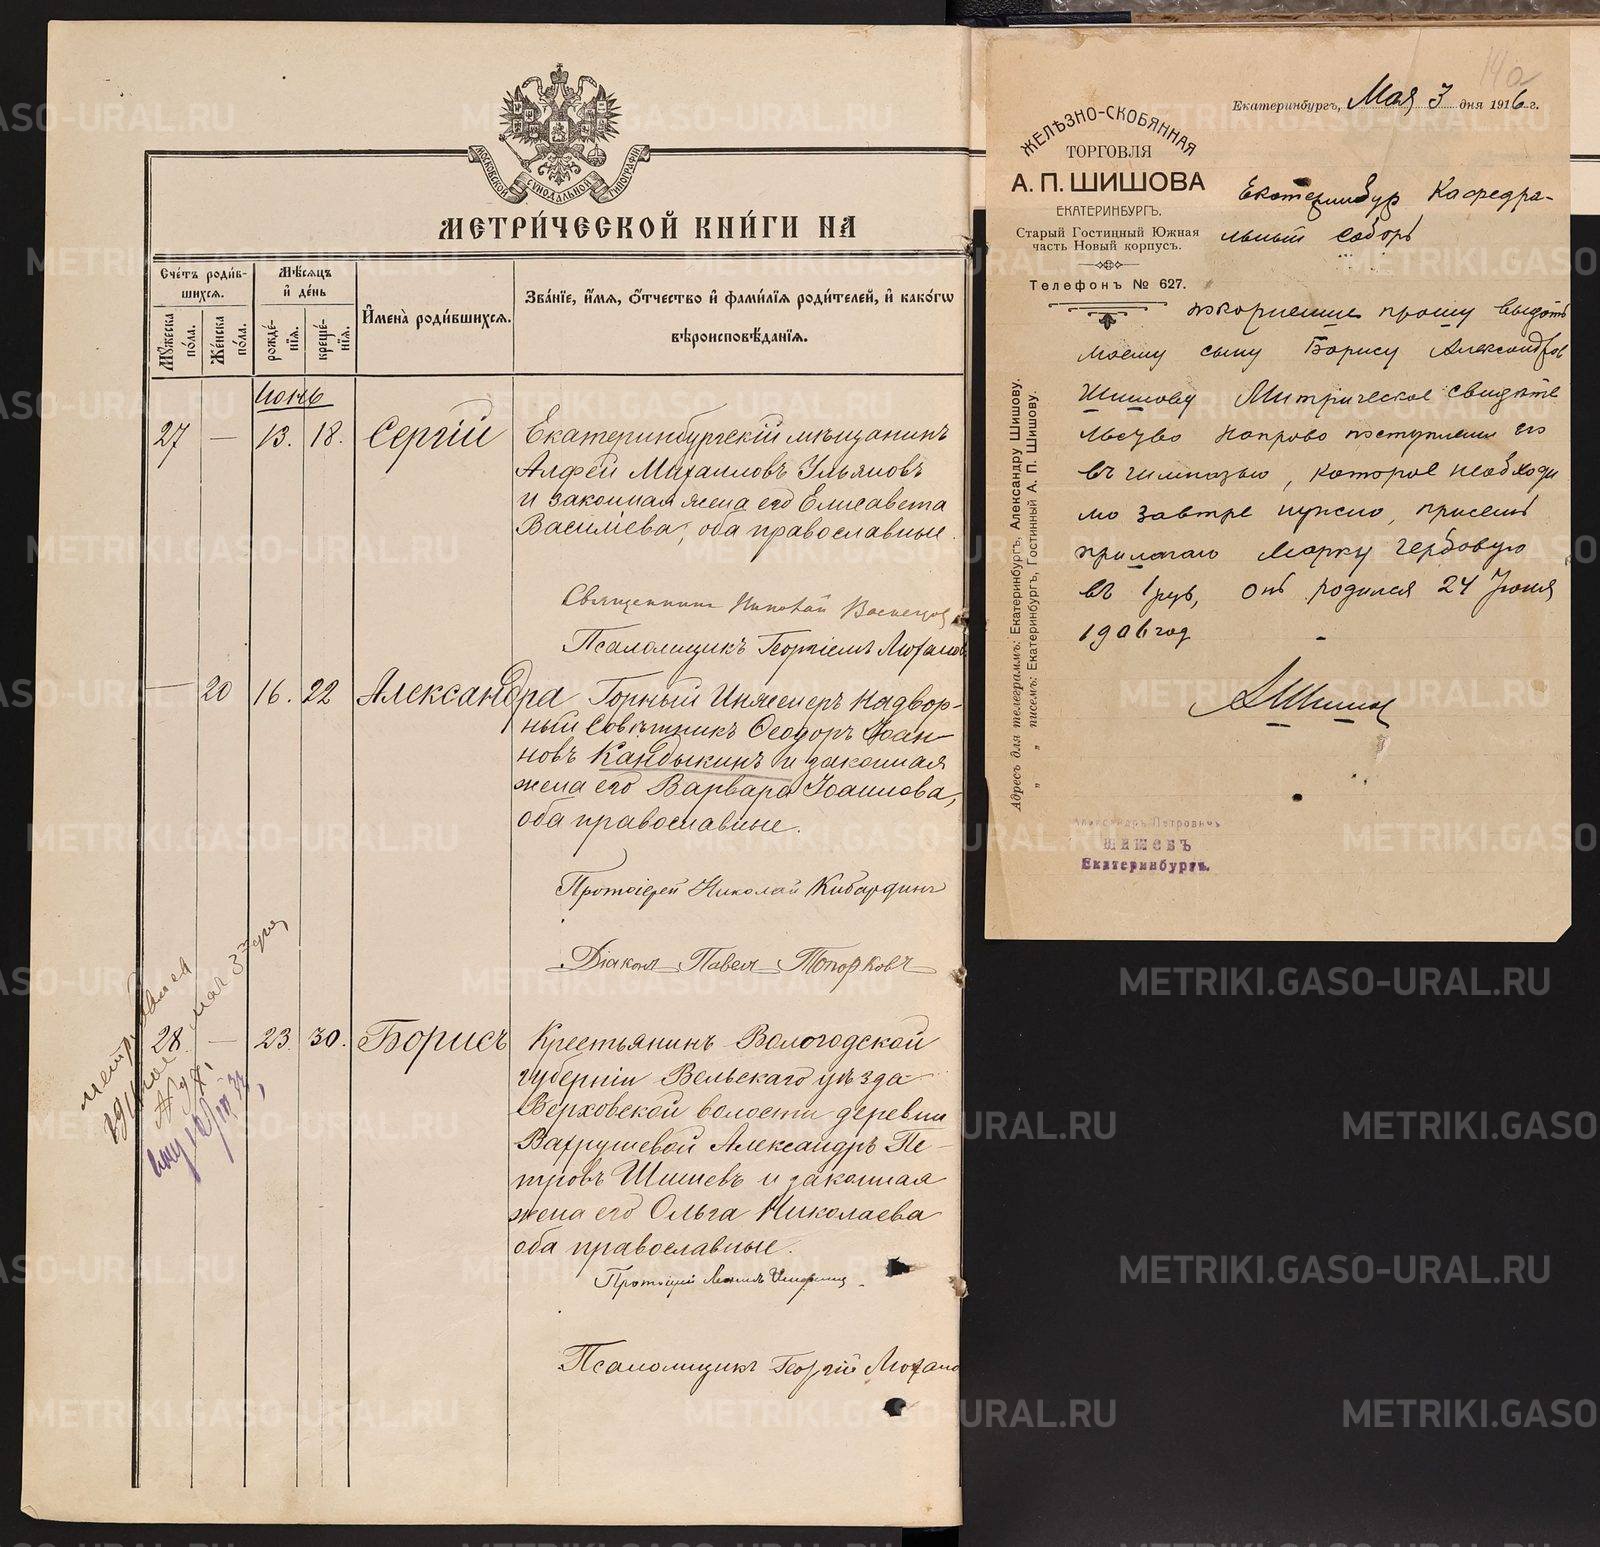 МОСКОВСКОЙ СУНОДАЛЬНОЙ ТИПОГРАФІИ
МЕТРИ́ЧЕСКОЙ КНИ́ГИ НА
Сче́тъ роди́в-
шихсѧ.
Мѣ́сѧцъ
и҆ де́нь
И҆мена̀ роди́вшихсѧ.
Зва́нїе, и҆́мѧ, ѻ҆́тчество и҆ фами́лїѧ роди́телей, и҆ како́гѡ
вѣроисповѣ́данїѧ.
Мꙋ́жеска по́ла.
Же́нска по́ла.
рожде́-
нїѧ.
креще́-
нїѧ.
Июнь
27 — 13. 18. Сергій Екатеринбургскій мѣщанинъ
Алфей Михаиловъ Ульяновъ
и законная жена его Елисавета
Василіева, оба православные.
Священникъ Николай
Псаломщикъ Георгій
— 20 16. 22 Александра Горный Инженеръ Надвор-
ный Совѣтникъ Ѳеодоръ Іоан-
новъ Кандыкинъ и законная
жена его Варвара Іоаннова,
оба православные.
Протоіерей Николай Кибардинъ
Діаконъ Павелъ Топорковъ
28. — 23. 30. Борисъ Крестьянинъ Вологодской
губерніи Вельскаго уѣзда
Верховской волости деревни
Вахрушевой Александръ Пе-
тровъ Шишевъ и законная
жена его Ольга Николаева
оба православные.
Протоіерей
Псаломщикъ Георгій
мая 3
14а
Екатеринбургъ, Мая 3 дня 1916 г.
ЖЕЛѢЗНО-СКОБЯННАЯ
ТОРГОВЛЯ
А. П. ШИШОВА
ЕКАТЕРИНБУРГЪ.
Старый Гостицный Южная
часть Новый корпусъ.
Телефонъ № 627.
Адресъ для телеграммъ: Екатеринбургъ. Александру Шишову.
„ „ писемъ: Екатеринбургъ, Гостинный А. П. Шишову.
Екатеринбур Кафедра-
льный Соборъ
прошу выдать
моему сыну Борису Александров
Шишову Митрическое свидѣте
льство направо поступления его
въ гимназью, которое необходи
мо завтре нужно, присемъ
прилагаю Марку гербовую
въ 1 руб, онъ родился 24 Июня
1906 год
АШишов
Александръ Петровичъ
ШИШЕВЪ
Екатеринбургъ.
METRIKI.GASO-URAL.RU